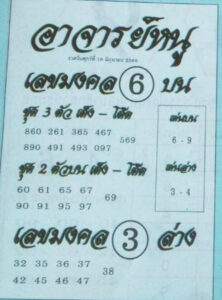 อาจารย์หนู
งวดวันศุกร์ที่ 16 มิถุนายน
เลขมงคล 6 บน
ชุด 3 ตัว เต็ง – โต๊ด
860 261 365 467
569
890 491 493 097
เด่นบน
6 - 9
ชุด 2 ตัวบน เต็ง – โต๊ด
60 61 65 67
69
90 91 95 97
เด่นล่าง
3 - 4
เลขมงคล 3 ล่าง
32 35 36 37
38
42 45 46 47